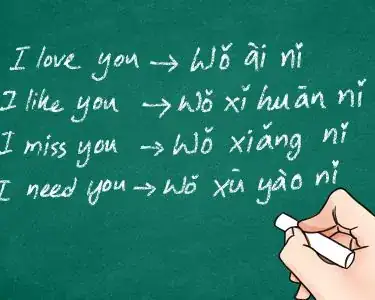 I love you → Wǒ ài nǐ
I like you → Wǒ xǐ huān nǐ
I miss you → Wǒ xiǎng nǐ
I need you → Wǒ xū yào nǐ